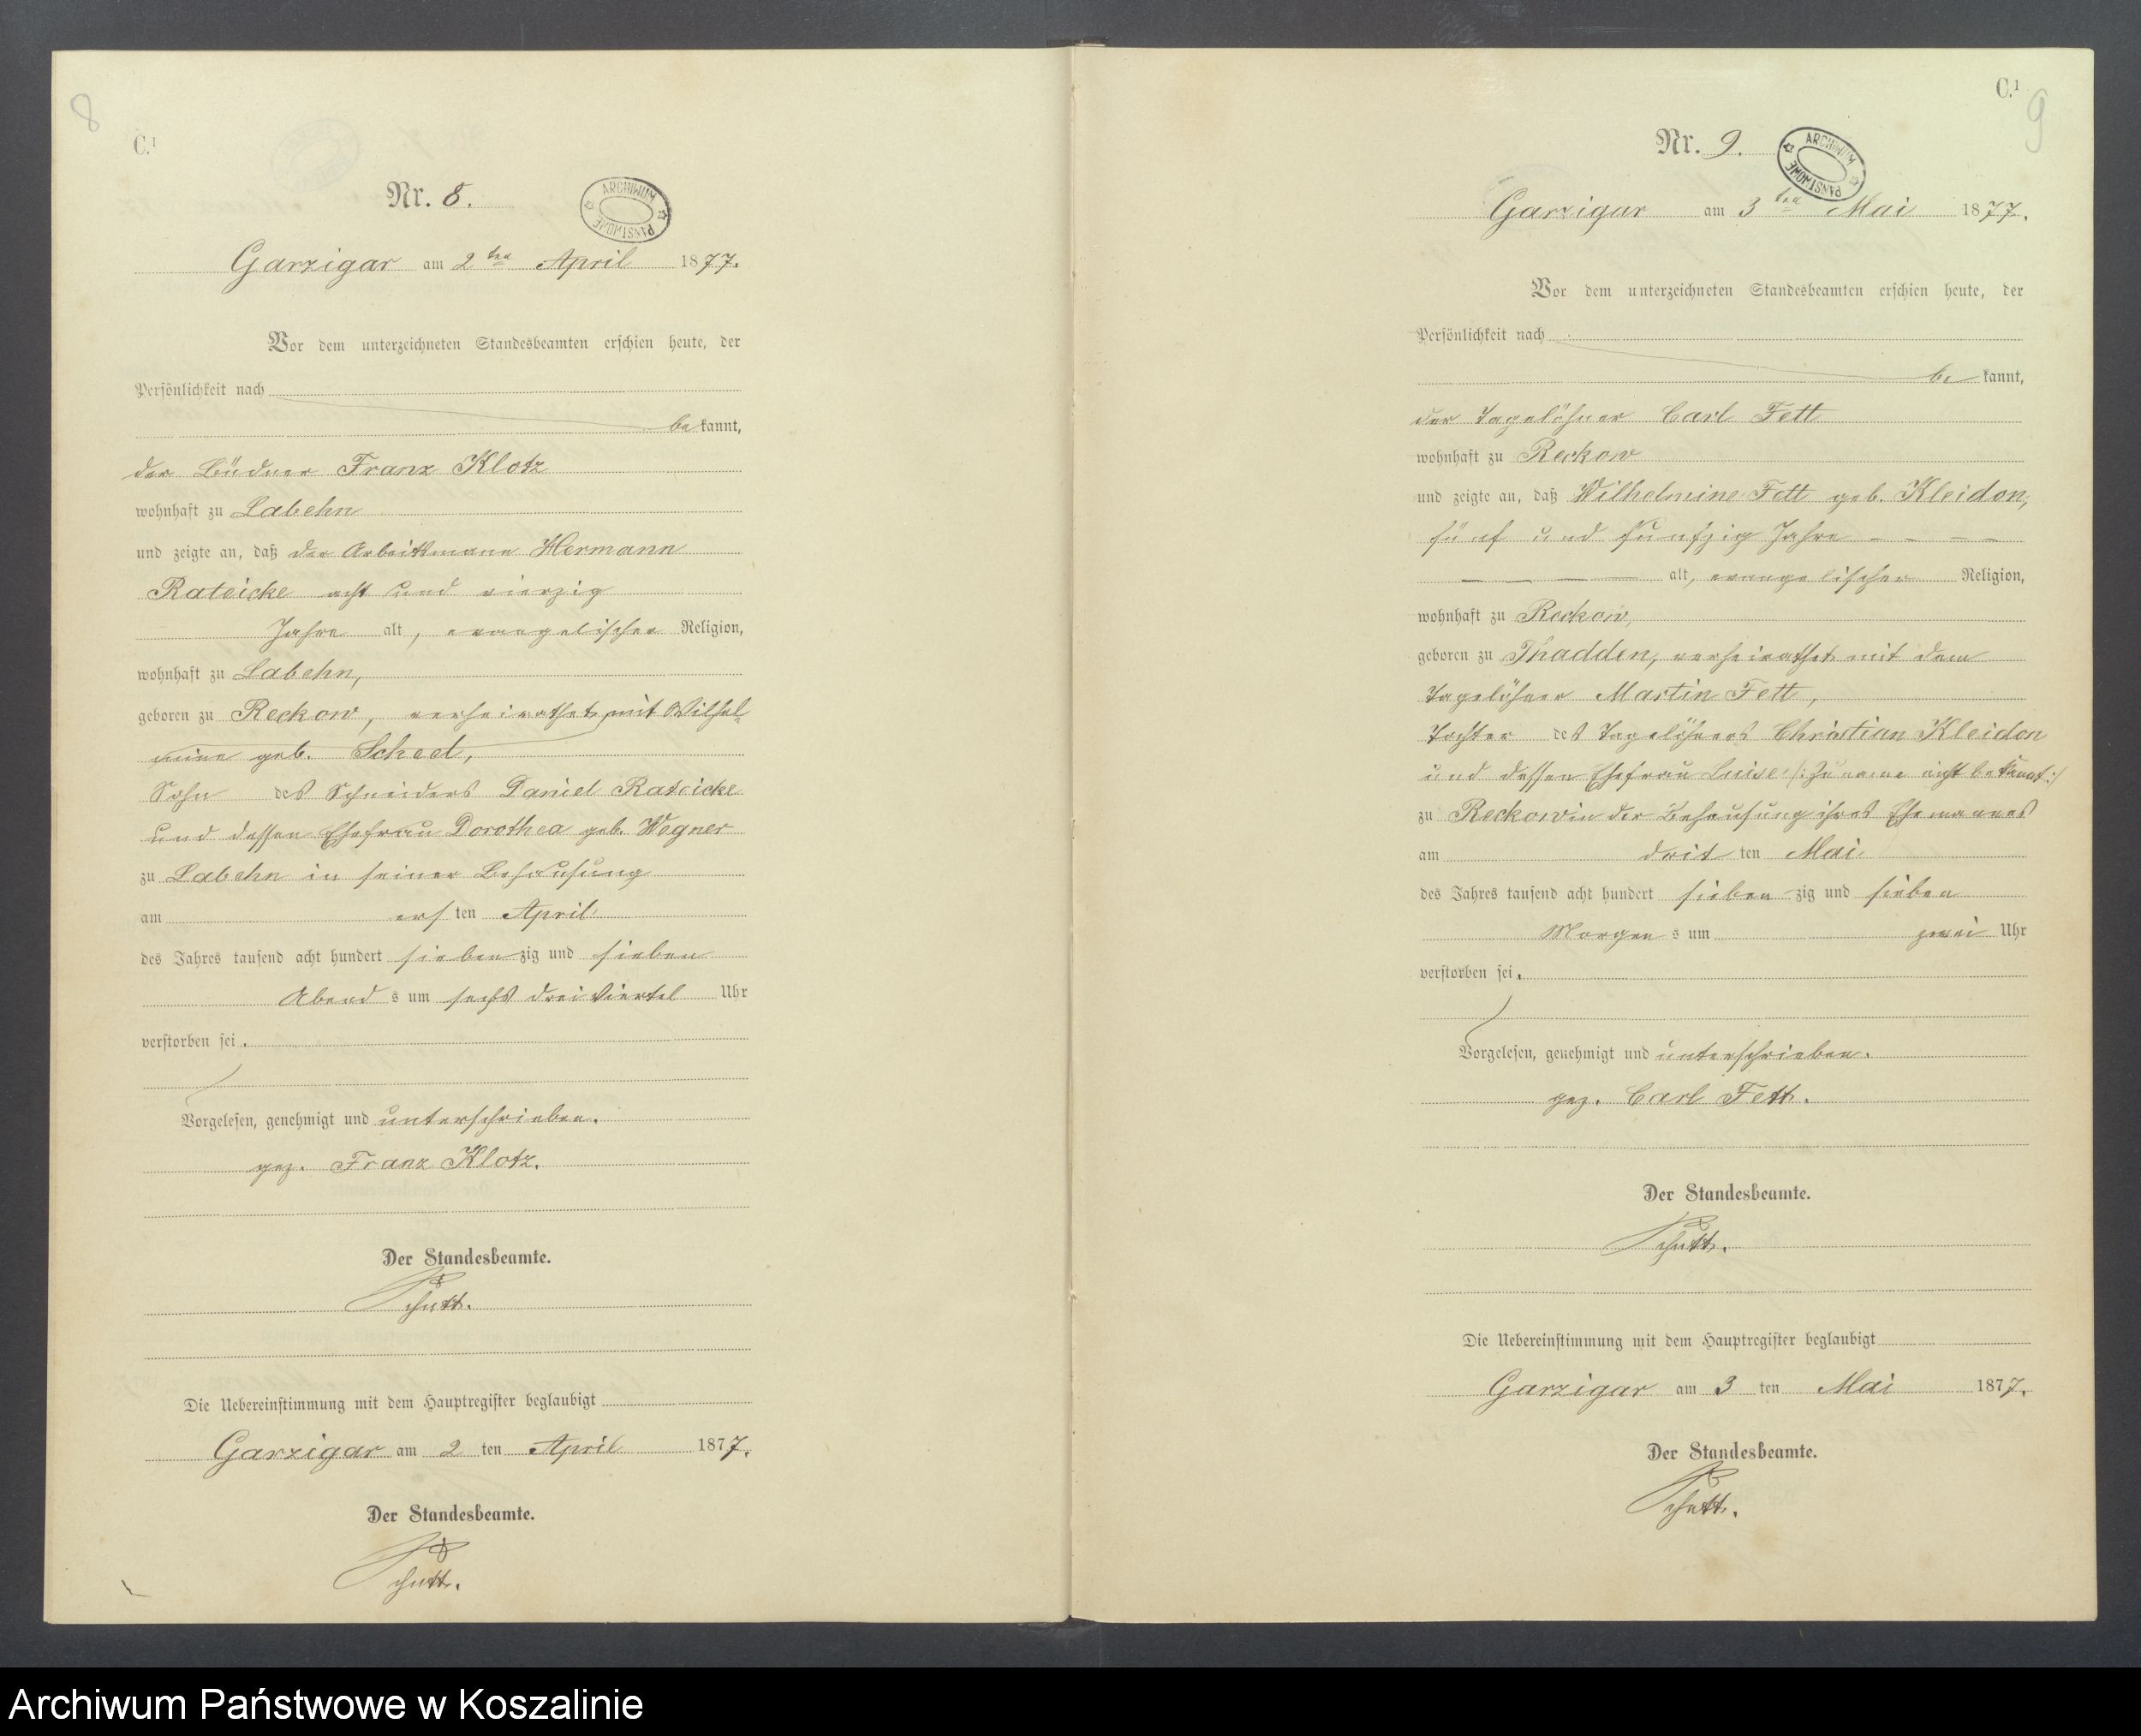 8
C.¹
Nr. 8.
ARCHIWUM PAŃSTWOWE
Garzigar am 2ten April 1877.
Vor dem unterzeichneten Standesbeamten erschien heute, der
Persönlichkeit nach
bekannt,
der Büdner Franz Klotz
wohnhaft zu Labehn
und zeigte an, daß der Arbeitsmann Hermann
Rateicke acht und vierzig
Jahre alt, evangelischer Religion,
wohnhaft zu Labehn,
geboren zu Reckow, verheirathet mit Wilhel-
mine geb. Scheel,
Sohn des Schneiders Daniel Rateicke
und dessen Ehefrau Dorothea geb. Wegner
zu Labehn in seiner Behausung
am ersten April
des Jahres tausend acht hundert siebenzig und sieben
Abends um sechs drei viertel Uhr
verstorben sei.
Vorgelesen, genehmigt und unterschrieben.
gez. Franz Klotz.
Der Standesbeamte.
Schutt.
Die Uebereinstimmung mit dem Hauptregister beglaubigt
Garzigar am 2 ten April 1877.
Der Standesbeamte.
Schutt.
C.¹
9
Nr. 9.
ARCHIWUM PAŃSTWOWE
Garzigar am 3ten Mai 1877.
Vor dem unterzeichneten Standesbeamten erschien heute, der
Persönlichkeit nach
bekannt,
der Tagelöhner Carl Fett
wohnhaft zu Reckow
und zeigte an, daß Wilhelmine Fett geb. Kleidon,
fünf und funfzig Jahre - - - -
— — — — alt, evangelischer Religion,
wohnhaft zu Reckow,
geboren zu Thadden, verheirathet mit dem
Tagelöhner Martin Fett,
Tochter des Tagelöhners Christian Kleidon
und dessen Ehefrau Luise /:Zuname nicht bekannt:/
zu Reckow in der Behausung ihres Ehemannes
am dritten Mai
des Jahres tausend acht hundert siebenzig und sieben
Morgens um zwei Uhr
verstorben sei.
Vorgelesen, genehmigt und unterschrieben.
gez. Carl Fett.
Der Standesbeamte.
Schutt.
Die Uebereinstimmung mit dem Hauptregister beglaubigt
Garzigar am 3 ten Mai 1877.
Der Standesbeamte.
Schutt.
Archiwum Państwowe w Koszalinie